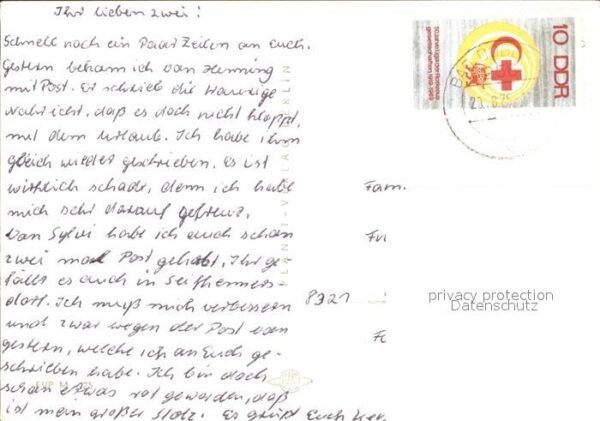 Ihr lieben zwei!
Schnell noch ein Paar Zeilen an Euch.
Gestern bekam ich von Henning
mit Post. Er schrieb die traurige
Nachricht, daß es doch nicht klappt,
mit dem Urlaub. Ich habe ihm
gleich wieder geschrieben. Es ist
wirklich schade, denn ich habe
mich sehr darauf gefreut.
Von Sylvi habe ich auch schon
zwei mal Post gehabt. Ihr ge-
fällt es auch in Seifhenners-
dorf. Ich muß mich verbessern
und zwar wegen der Post von
gestern, welche ich an Euch ge-
schrieben habe. Ich bin doch
schon etwas rot geworden, daß
ist mein großer Stolz. Es grüßt Euch
50 Jahre Liga der Rotkreuz-
gesellschaften 1919-1969
10 DDR
Fam.
8321
privacy protection
Datenschutz